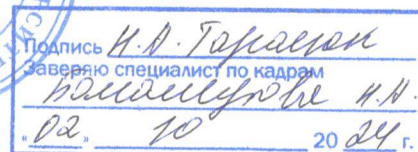 Подпись Н.А. Тарасюк
Заверяю специалист по кадрам
Н.
"02" 10 2024 г.